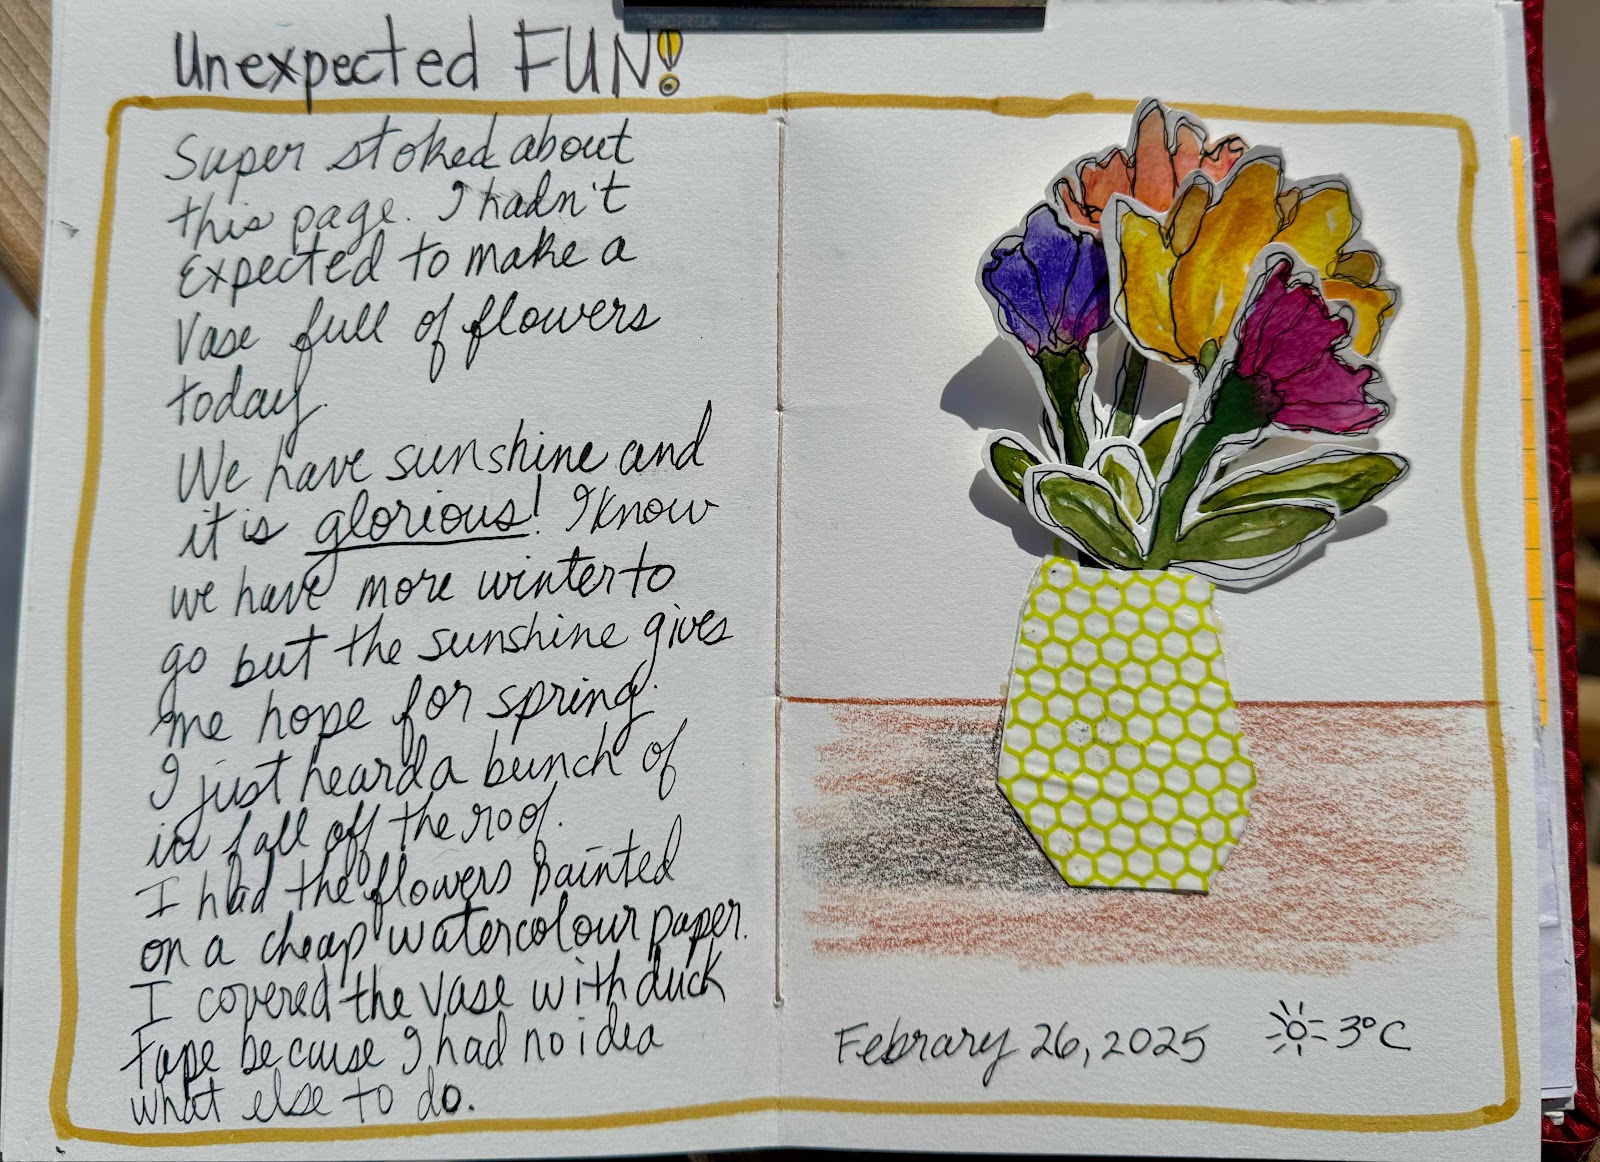 Unexpected FUN!
Super stoked about
this page. I hadn't
expected to make a
vase full of flowers
today.
We have sunshine and
it is glorious! I know
we have more winter to
go but the sunshine gives
me hope for spring.
I just heard a bunch of
ice fall off the roof.
I had the flowers painted
on a cheap watercolour paper.
I covered the vase with duck
tape because I had no idea
what else to do.
Febrary 26, 2025 3°C